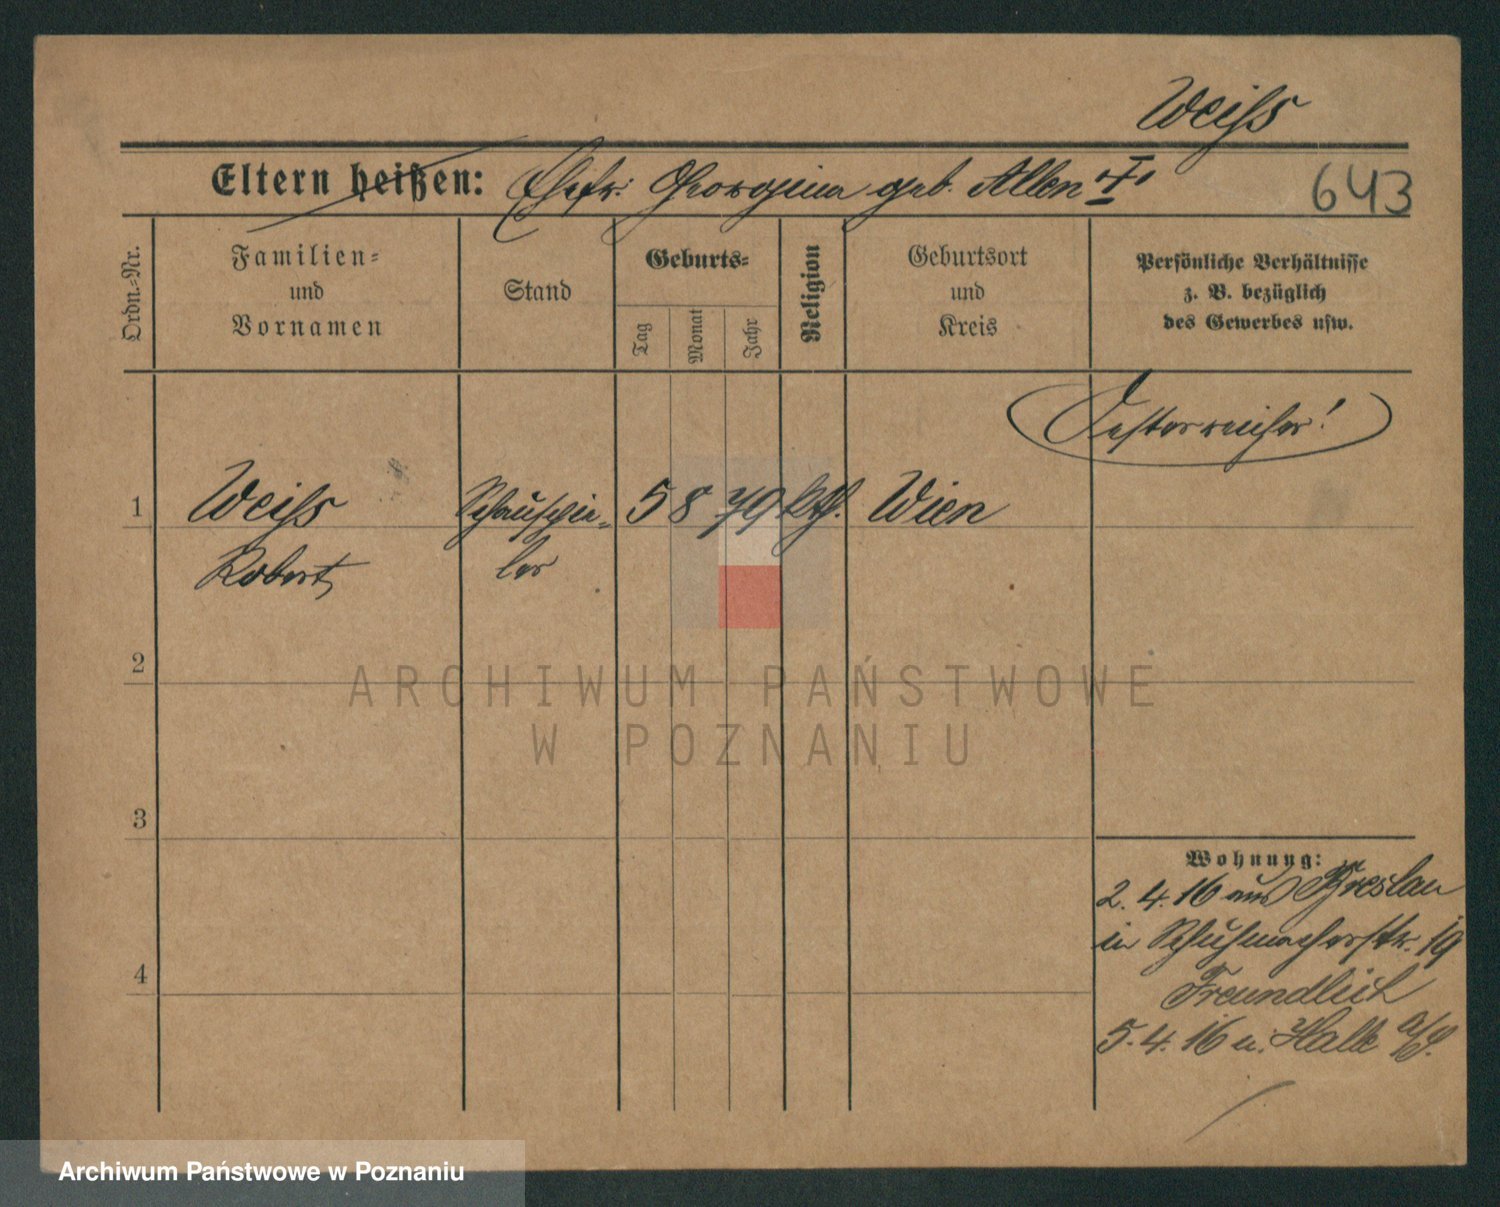 Weiſs
Eltern heißen: Ehefr: Georgina geb. Allen "I"
643
Ordn.-Nr.
Familien-
und
Vornamen
Stand
Geburts-
Tag
Monat
Jahr
Religion
Geburtsort
und
Kreis
Persönliche Verhältnisse
z. B. bezüglich
des Gewerbes usw.
Oesterreicher!
1 Weiſs Schauspie- 5 8 79 kth. Wien
Robert ler
2
3
4
Wohnung:
2. 4. 16 aus Breslau
in Schuhmacherstr. 19
Freundlich
5. 4. 16 n. Halle a/S.
ARCHIWUM PAŃSTWOWE
W POZNANIU
Archiwum Państwowe w Poznaniu